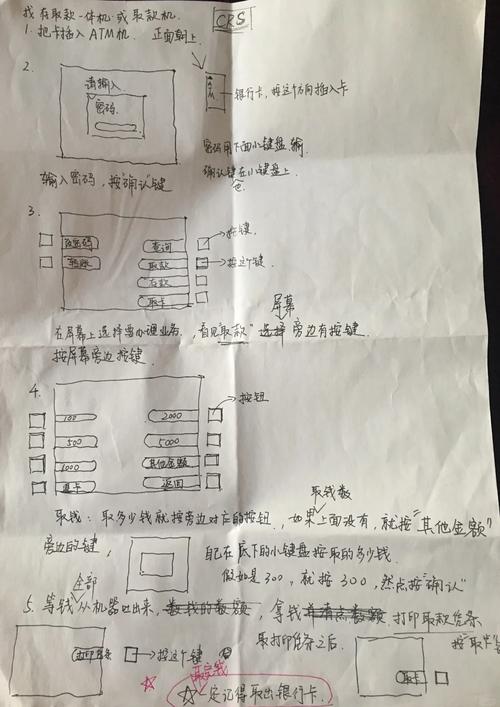 找存取款一体机 或取款机. CRS
1. 把卡插入 ATM 机. 正面朝上.
2.
请输入
密码
银行卡, 按这个方向插入卡
密码用下面小键盘输.
确认键在小键盘上.
输入密码, 按"确认"键
3.
改密码
查询
按键.
转账
取款
按这个键.
存款
取卡
屏幕
在屏幕上选择要办理业务, 看见"取款"选择 旁边有按键.
按屏幕旁边按键.
4.
100
2000
按钮
500
5000
1000
其他金额
退卡
返回
取钱数
取钱: 取多少钱就按旁边对应的按钮, 如果上面没有, 就按"其他金额"
旁边的键,
自己在底下的小键盘按取的多少钱.
假如是300, 就按300, 然后按"确认"
全部
5. 等钱从机器吐出来, 数我的数额, 拿钱 打印取款凭条
取打印凭条之后. 按"取卡"
打印凭条
按这个键
取卡
取完钱
☆一定记得取出银行卡.